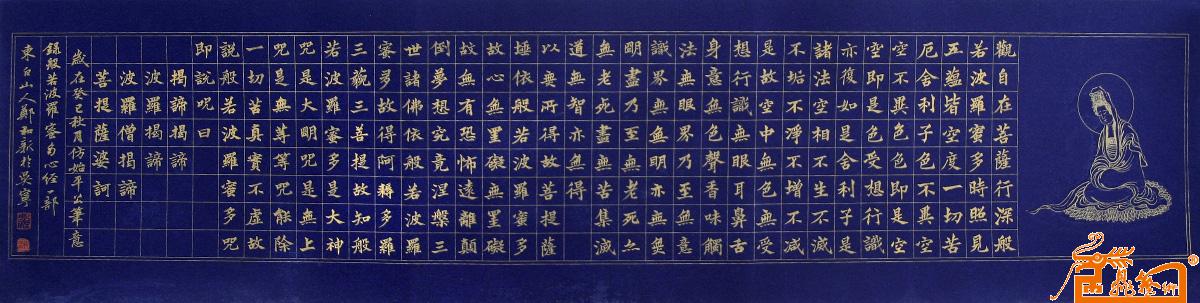 觀自在菩薩行深般
若波羅蜜多時照見
五蘊皆空度一切苦
厄舍利子色不異空
空不異色色即是空
空即是色受想行識
亦復如是舍利子是
諸法空相不生不滅
不垢不淨不增不減
是故空中無色無受
想行識無眼耳鼻舌
身意無色聲香味觸
法無眼界乃至無意
識界無無明亦無無
明盡乃至無老死亦
無老死盡無苦集滅
道無智亦無得
以無所得故菩提薩
埵依般若波羅蜜多
故心無罣礙無罣礙
故無有恐怖遠離顛
倒夢想究竟涅槃三
世諸佛依般若波羅
蜜多故得阿耨多羅
三藐三菩提故知般
若波羅蜜多是大神
咒是大明咒是無上
咒是無等等咒能除
一切苦真實不虛故
說般若波羅蜜多咒
即說咒曰
揭諦揭諦
波羅揭諦
波羅僧揭諦
菩提薩婆訶
歲在癸巳秋月仿始平公筆意
錄般若波羅蜜多心經一部
東白山人鄭和新於吳寧